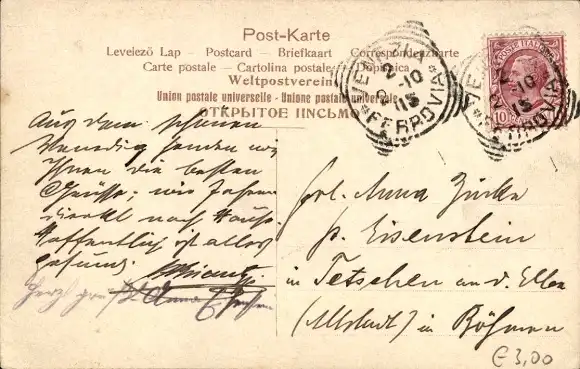 Post-Karte
Levelező Lap — Postcard — Briefkaart — Correspondenzkarte
Carte postale — Cartolina postale — Dopisnica
Weltpostverein
Union postale universelle - Unione postale universale
ОТКРЫТОЕ ПИСЬМО
VENEZIA
FERROVIA
POSTE ITALIANE
10
Aus dem schönen
Venedig senden wir
Ihnen die besten
Grüsse; wir fahren
direkt nach Hause.
Hoffentlich ist alles
gesund.
Herzl. Anna
Frl. Anna
p. Eisenstein
in Tetschen an d. Elbe
(Altstadt) in Böhmen
€ 3,00